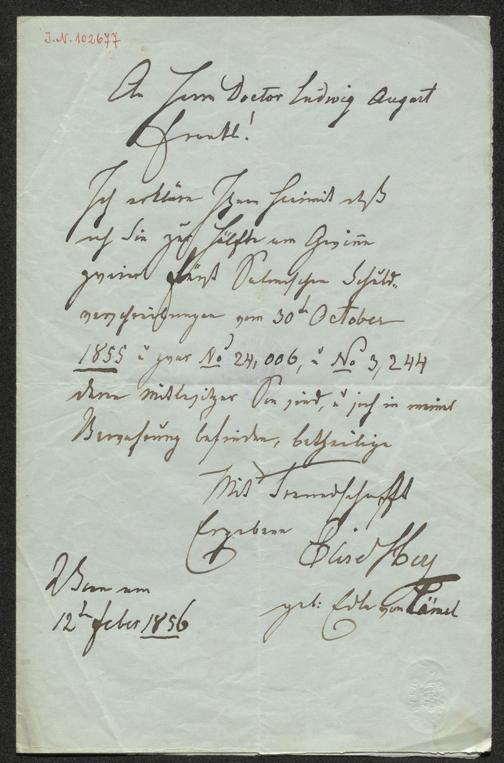 I.N. 102677
An Herrn Doctor Ludwig August
Frankl!
Ich erkläre Ihnen hiemit daß
ich Sie zur Hälfte am Gewinn
zweier Fürst Salmischen Schuld-
verschreibungen vom 30t October
1855 u zwar No 24,006, u No 3,244
deren Mitbesitzer Sie sind, u sich in meiner
Verwahrung befinden, betheilige
Mit Freundschaft
Ergebene Elise Herz
geb: Edle von Lämel
Wien am
12t Feber 1856